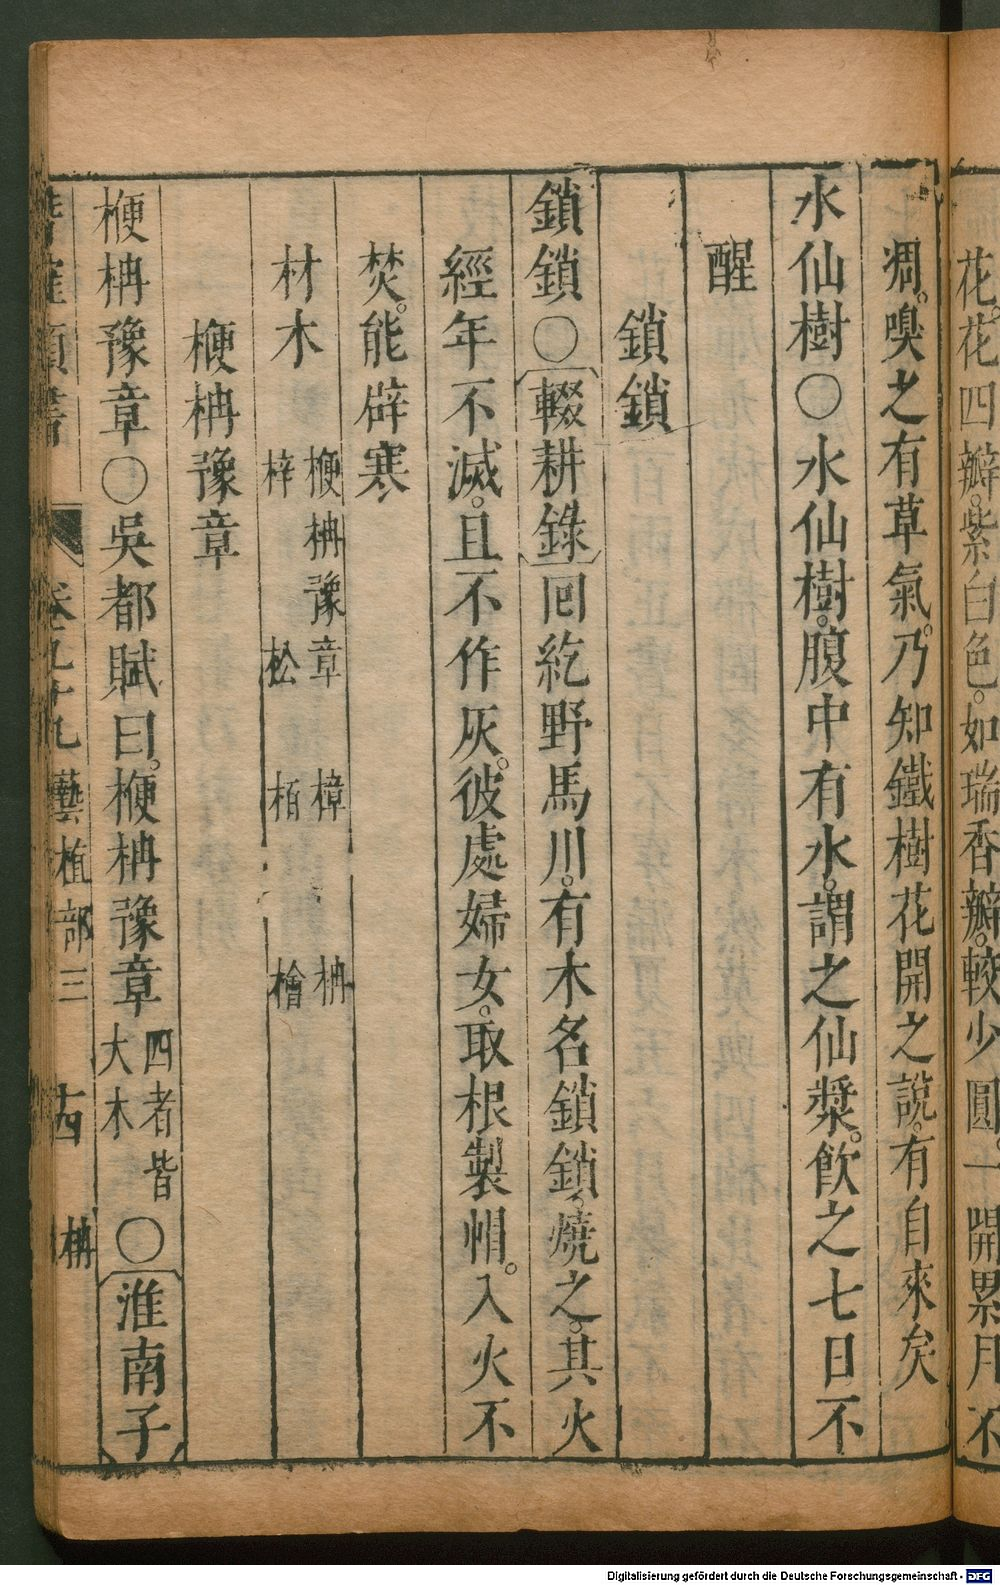 花。花四瓣。紫白色。如瑞香瓣。較少圓。一開累月不
凋。嗅之有草氣。乃知鐵樹花開之說。有自來矣
水仙樹〇水仙樹。腹中有水。謂之仙漿。飲之七日不
醒
鎖鎖
鎖鎖〇輟耕錄回紇野馬川。有木名鎖鎖。燒之。其火
經年不滅。且不作灰。彼處婦女。取根製帽。入火不
焚。能辟寒
材木
楩柟豫章 樟 柟
梓 松 栢 檜
楩柟豫章
楩柟豫章〇吳都賦曰。楩柟豫章
四者皆
大木
〇淮南子
卷九十九 藝植部三 古 柟
Digitalisierung gefördert durch die Deutsche Forschungsgemeinschaft - DFG